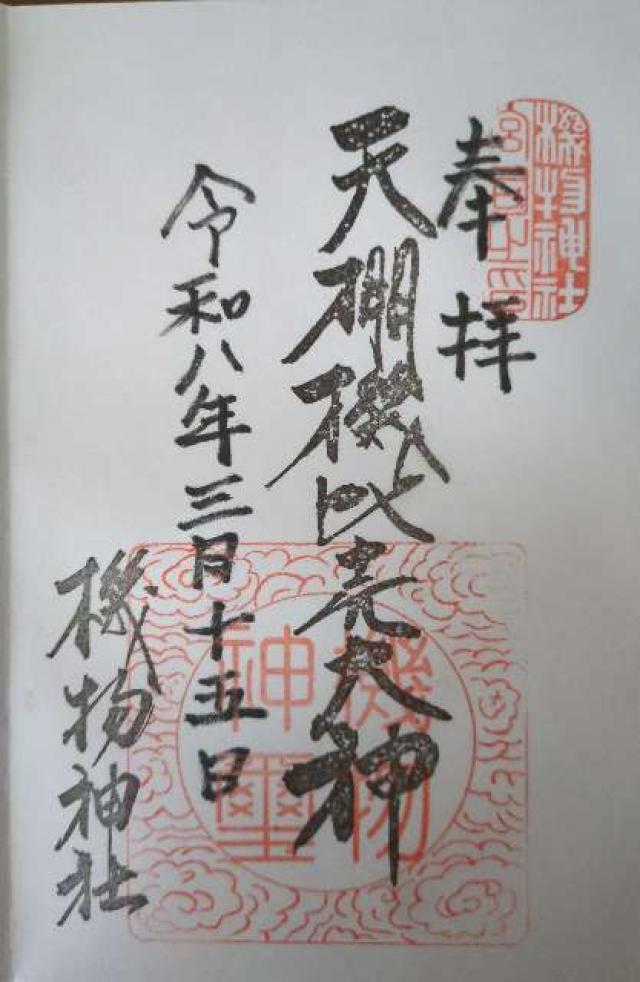 奉拝
天棚機比売大神
令和八年三月十五日
機物神社
機物神社
宮司之印
機物
神璽